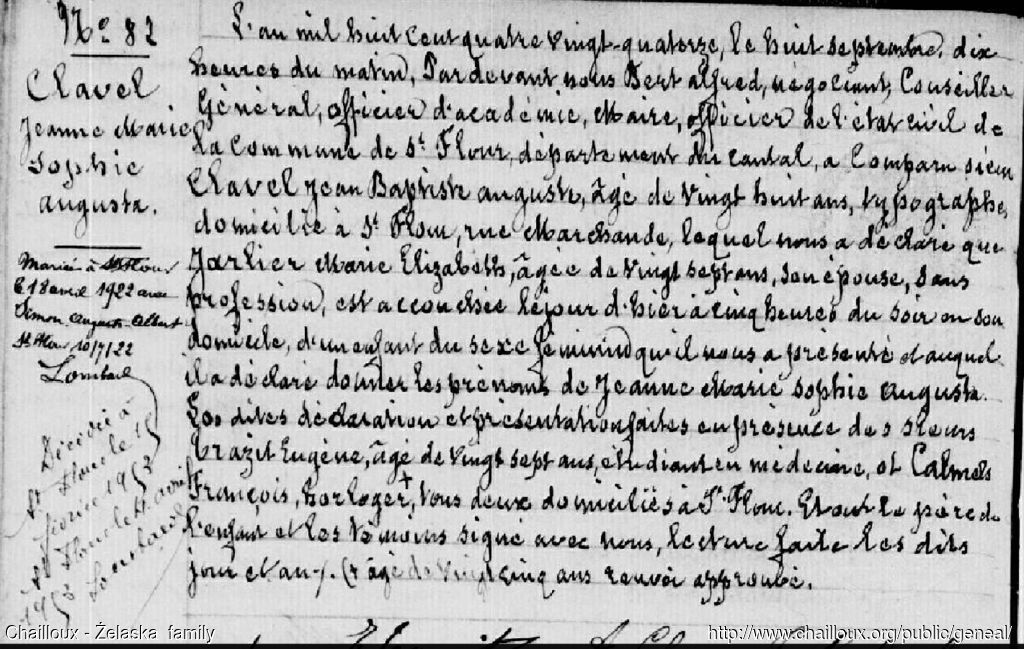 N° 82
Clavel
Jeanne Marie
Sophie
Augusta.
Mariée à St Flour
le 18 avril 1922 avec
Simon Auguste Albert
St Flour
Lombard
Décédée à
St Flour le 15
février 1953
St Flour le 14 avril
1953 Lombard
L'an mil huit cent quatre vingt-quatorze, le huit septembre, dix
heures du matin, Pardevant nous Bert Alfred, négociant, Conseiller
Général, officier d'académie, Maire, officier de l'état civil de
la Commune de St Flour, département du Cantal, a Comparu sieur
Clavel Jean Baptiste Auguste, âgé de vingt huit ans, typographe,
domicilié à St Flour, rue Marchande, lequel nous a déclaré que
Jarlier Marie Elizabeth, âgée de vingt sept ans, son épouse, sans
profession, est accouchée le jour d'hier à cinq heures du soir en son
domicile, d'un enfant du sexe féminin qu'il nous a présenté et auquel
il a déclaré donner les prénoms de Jeanne Marie Sophie Augusta.
Les dites déclaration et présentation faites en présence des sieurs
Crazit Eugène, âgé de vingt sept ans, étudiant en médecine, et Calmels
François, horloger +, tous deux domiciliés à St Flour. Et ont le père de
l'enfant et les témoins signé avec nous, lecture faite les dits
jour et an. (+ âgé de vingt cinq ans renvoi approuvé.
Chailloux - Želaska family
http://www.chailloux.org/public/geneal/